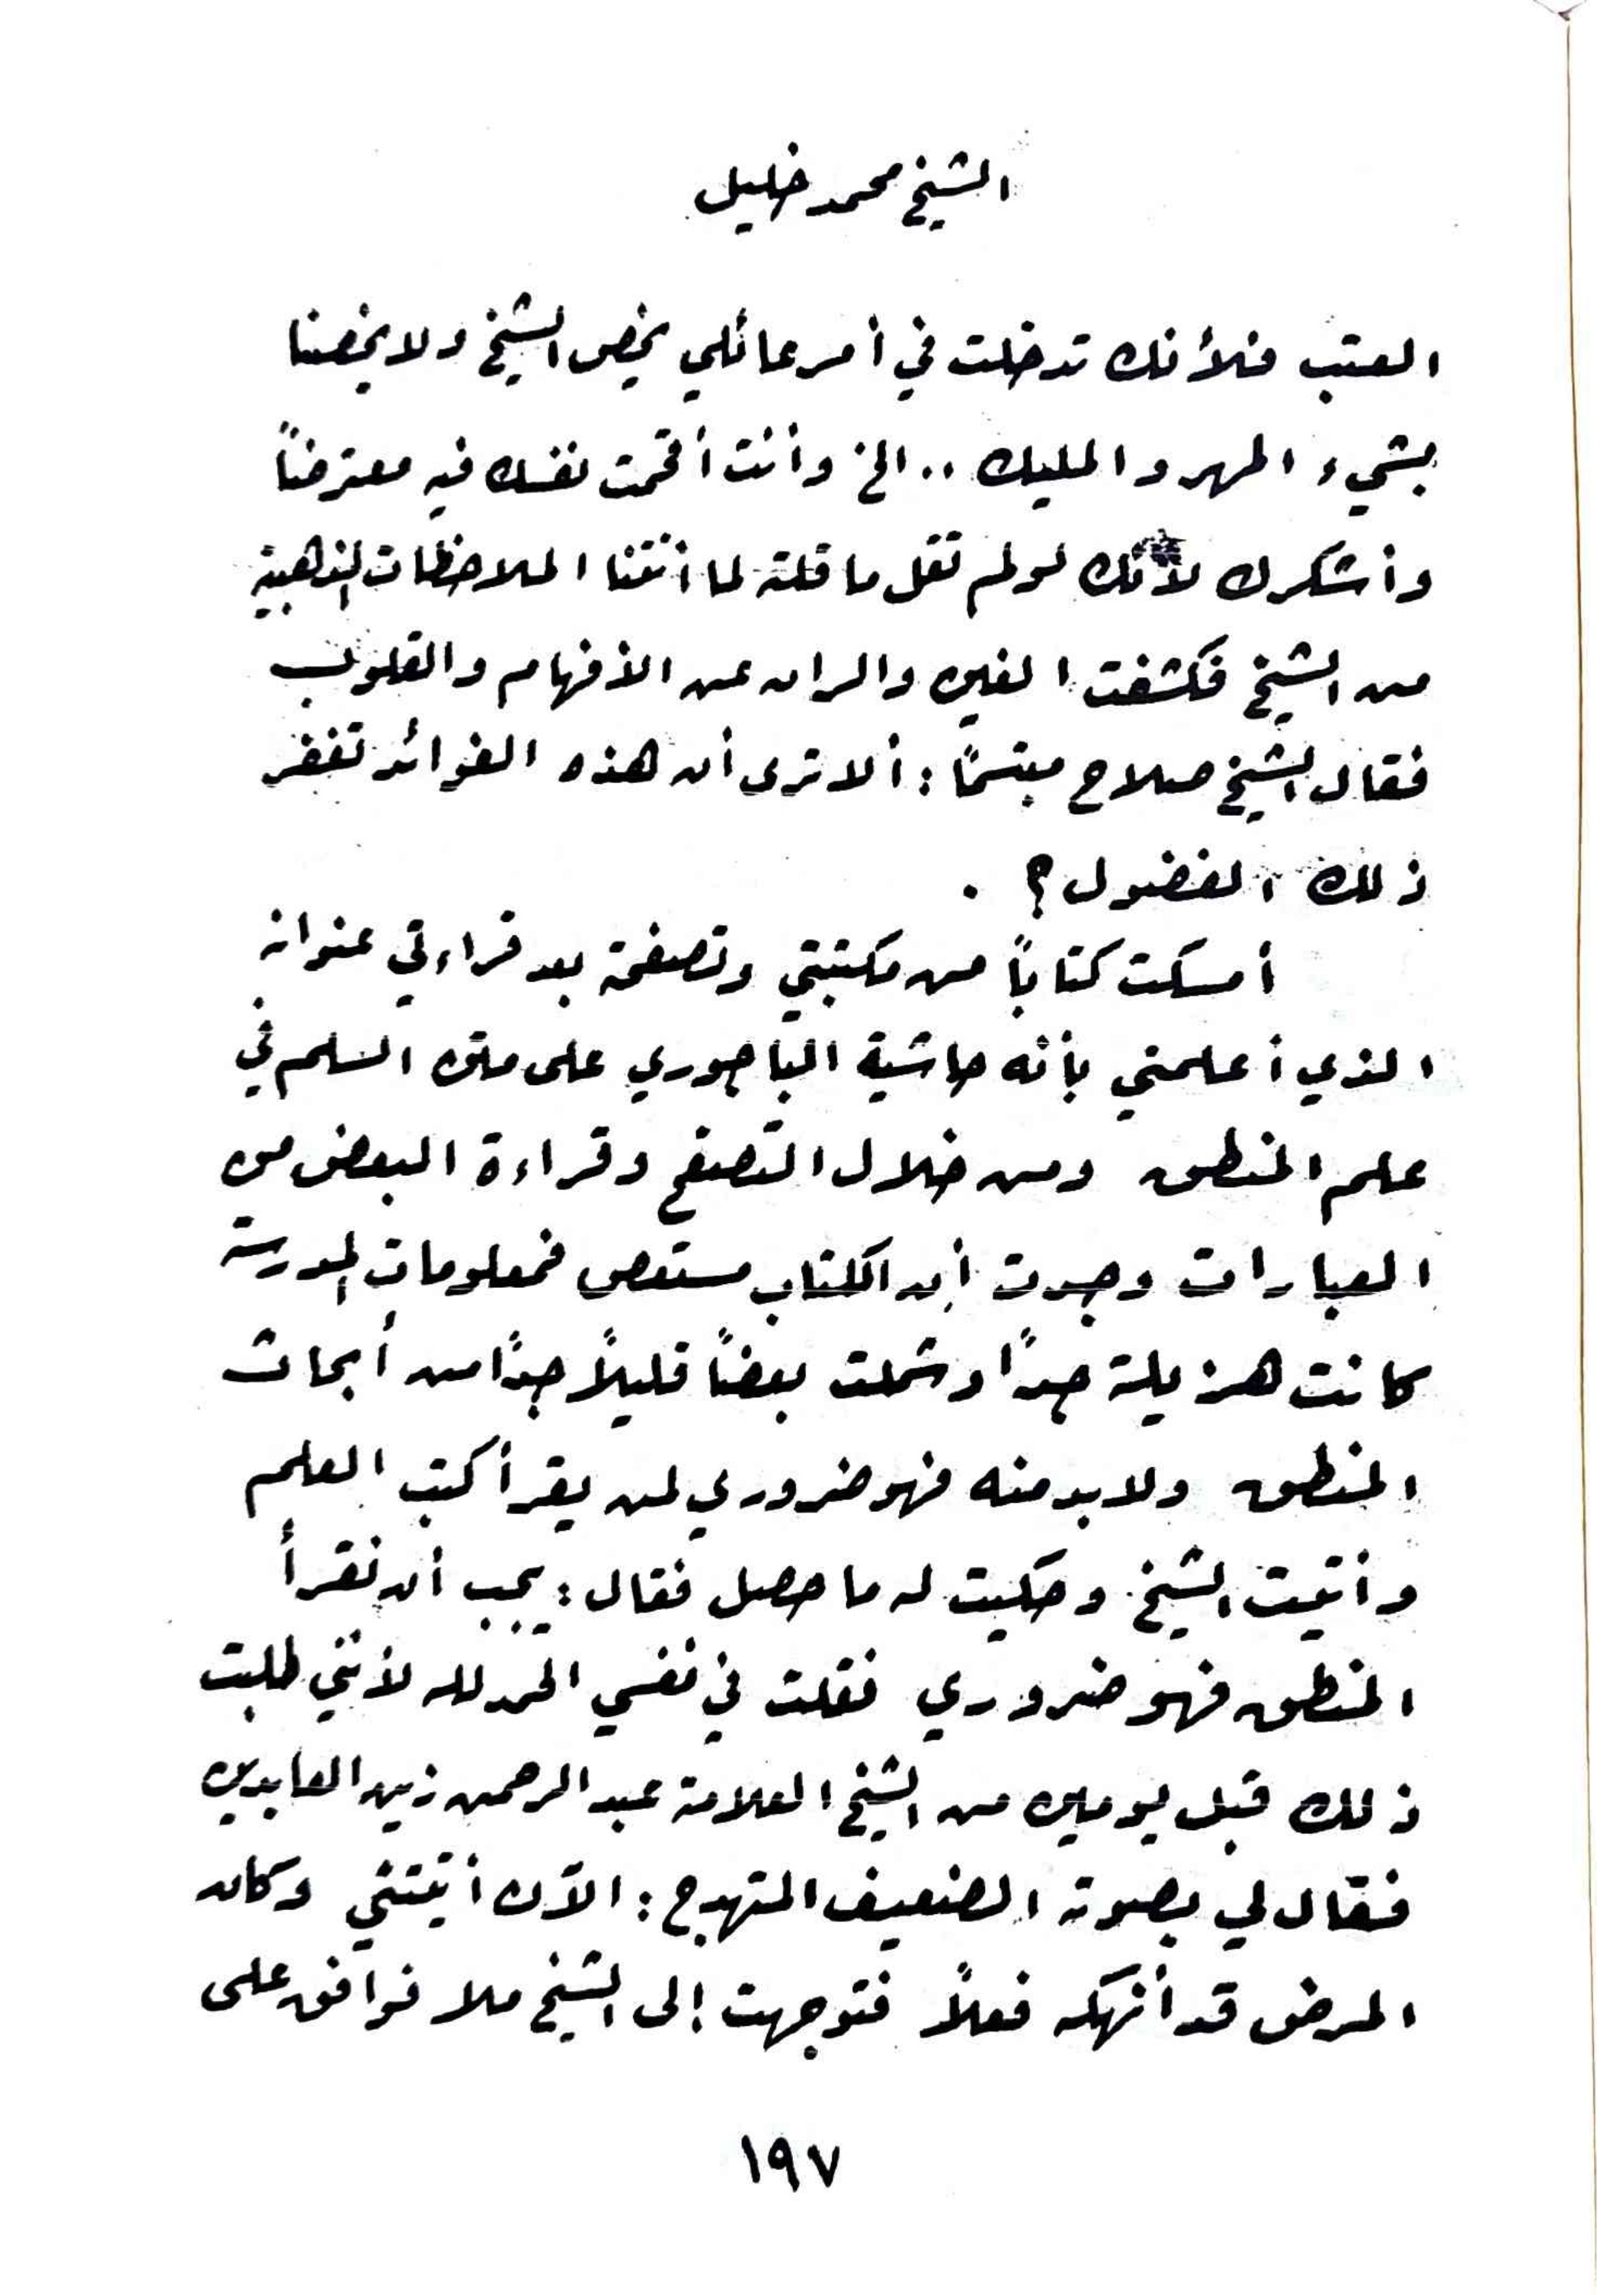 الشيخ محمد خليل
العتب فلأنك تدخلت في أمر عائلي يخص الشيخ ولا يخصنا
بشيء المهر والمليك .. الخ وأنت أقحمت نفسك فيه معترضاً
وأشكرك لأنك لو لم تقل ما قلته لما أتتنا الملاحظات الذهبية
من الشيخ فكشفت الغين والران عن الأفهام والقلوب
فقال الشيخ صلاح مبتسمًا : ألا ترى أن هذه الفوائد تغفر
ذلك الفضول ؟ .
أمسكت كتاباً من مكتبتي وتصفحته بعد قراءتي عنوانه
الذي أعلمني بأنه حاشية الباجوري على متن السلم في
علم المنطق ومن خلال التصفح وقراءة البعض من
العبارات وجدت أن الكتاب مستعص فمعلومات المدرسة
كانت هزيلة جداً وشملت بعضاً قليلاً جداً من أبحاث
المنطق ولا بد منه فهو ضروري لمن يقرأ كتب العلم
وأتيت الشيخ وحكيت له ما حصل فقال : يجب أن نقرأ
المنطق فهو ضروري فقلت في نفسي الحمد لله لأنني طلبت
ذلك قبل يومين من الشيخ العلامة عبد الرحمن زين العابدين
فقال لي بصوته الضعيف المتهدج : الآن أتيتني وكان
المرض قد أنهكه فعلاً فتوجهت إلى الشيخ ملا فوافق على
١٩٧